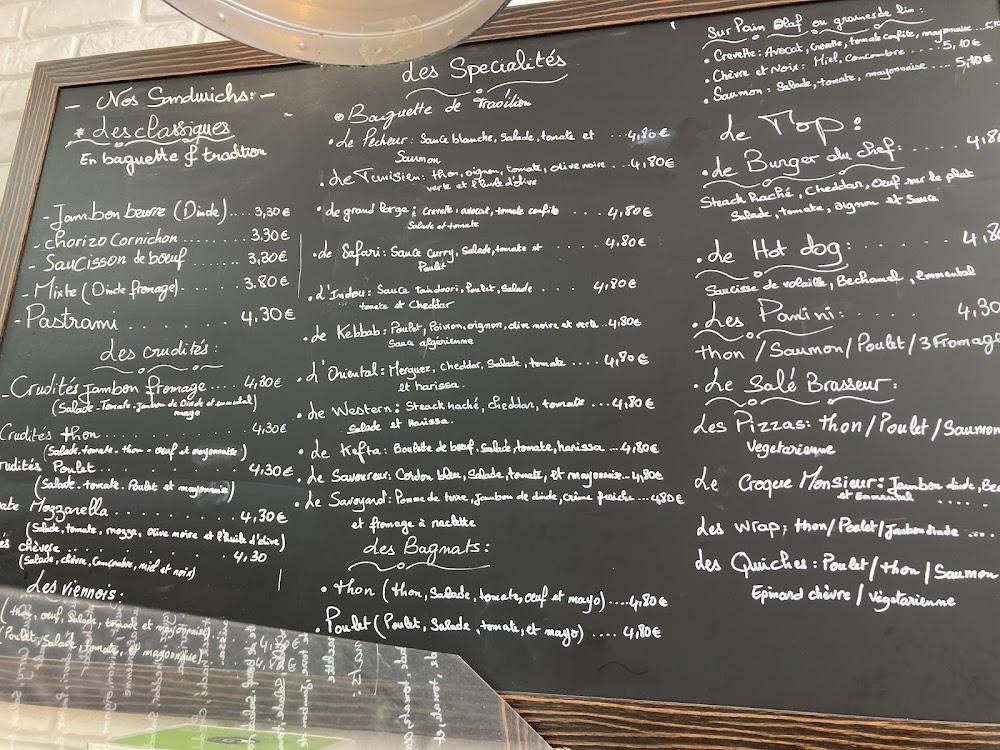 - Nos Sandwichs: -
* Les classiques
En baguette & tradition
- Jambon beurre (Dinde).... 3,30€
- chorizo Cornichon ........ 3,30€
- Saucisson de boeuf ....... 3,30€
- Mixte (Dinde fromage). .... 3.80€
- Pastrami . . . . . . . 4,30€
Les crudités:
Crudités Jambon fromage .... 4,30€
(Salade - Tomate - Jambon de Dinde et emmental)
mayo
Crudités thon. . . . . . . 4,30€
(Salade, tomate - thon - oeuf et mayonnaise)
rudités Poulet. . . . . . . 4,30€
(Salade - tomate - Poulet et mayonnaise)
ate Mozzarella . . . . . . 4,30€
(Salade, tomate, mozza, olive noire et l'huile d'olive)
és chèvre . . . . . . . 4,30
(Salade, chèvre, Concombre, miel et noix)
Les viennois:
(thon, oeuf, Salade, tomate et mayonnaise)
(Poulet, Salade, tomate, et mayonnaise)
Les Specialités
Baguette de Tradition
• Le Pecheur: Sauce blanche, Salade, tomate et ...4,80€
Saumon
• Le Tunisien: thon, oignon, tomate, olive noire ...4,80€
verte et l'huile d'olive
• Le grand large: Crevette, avocat, tomate confite . . . . 4,80€
Salade et tomate
• Le Safari: Sauce Curry, Salade, tomate et . . . . 4,80€
Poulet
• L'Indou: Sauce Tandoori, Poulet, Salade . . . . 4,80€
tomate et Cheddar
• Le Kebbab: Poulet, Poivron, oignon, olive noire et verte ..4,80€
Sauce algérienne
• L'Oriental: Merguez, Cheddar, Salade, tomate .... 4,80€
et harissa.
• Le Western: Steack haché, cheddar, tomate ...4,80€
Salade et Harissa.
• Le Kefta: Boulette de boeuf, Salade, tomate, harissa ...4,80€
• Le Savoureux: Cordon bleu, Salade, tomate, et mayonnaise...4,80€
• Le Savoyard: Pomme de terre, Jambon de dinde, Crème fraiche ...4,80€
et fromage à raclette
Les Bagnats:
• thon (thon, Salade, tomate, oeuf et mayo) ....4,80€
• Poulet (Poulet, Salade, tomate, et mayo) .... 4,80€
Sur Pain Olaf ou graines de lin:
• Crevette: Avocat, Crevette, tomate confite, mayonnaise ...5,10
• Chèvre et Noix: Miel, Concombre ....5,10€
• Saumon: Salade, tomate, mayonnaise .... 5,10€
Le Top:
• Le Burger du chef: . . . . . 4,8
Steack Haché, Cheddar, Oeuf sur le plat
Salade, tomate, oignon et Sauce
• Le Hot dog: . . . . . . . 4,8
Saucisse de volaille, Bechamel, Emmental
• Les Panini: . . . . . . 4,30
thon / Saumon / Poulet / 3 Fromage
• Le Salé Brasseur:
Les Pizzas: thon / Poulet / Saumon
Vegetarienne
Le Croque Monsieur: Jambon dinde, Bec
et Emmental . . . .
Les Wrap; thon / Poulet / Jambon dinde ....
Les Quiches: Poulet / thon / Saumon
Epinard chèvre / Végetarienne